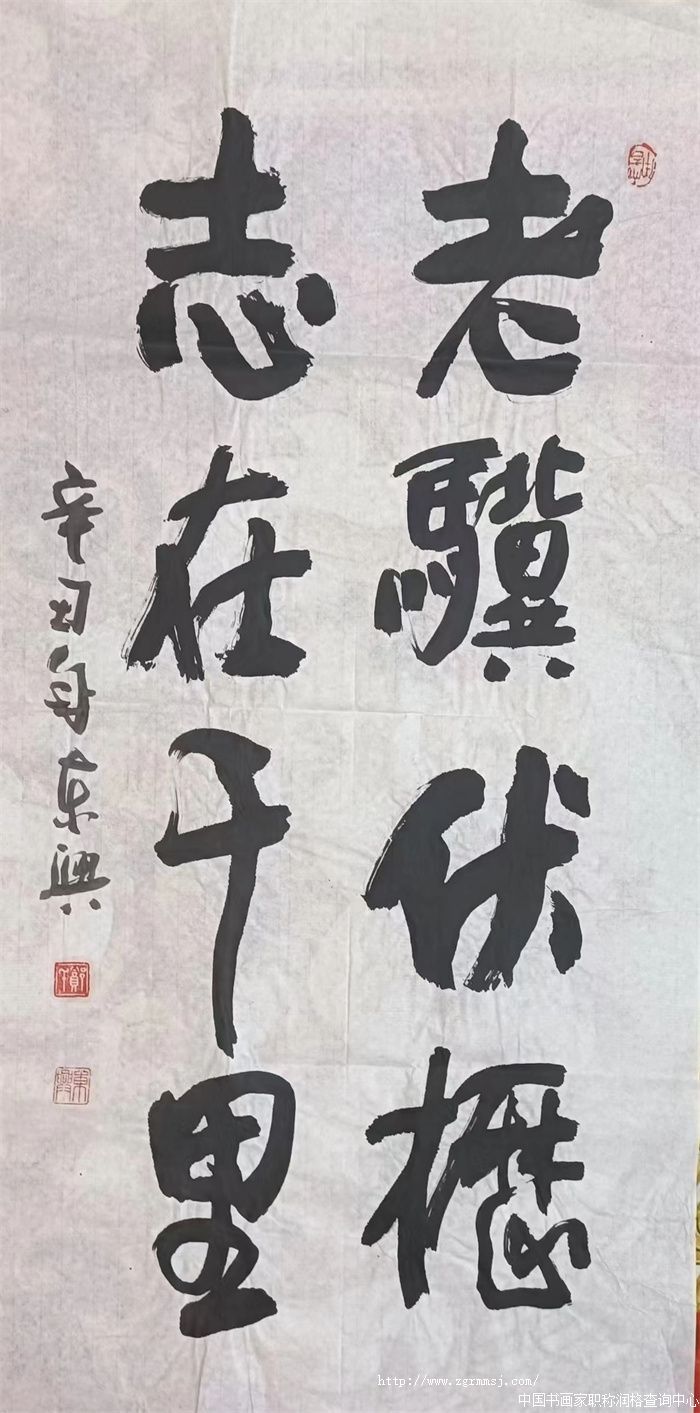 老驥伏櫪
志在千里
辛丑年東興
http://www.zgrmmsj.com/
中国书画家职称润格查询中心